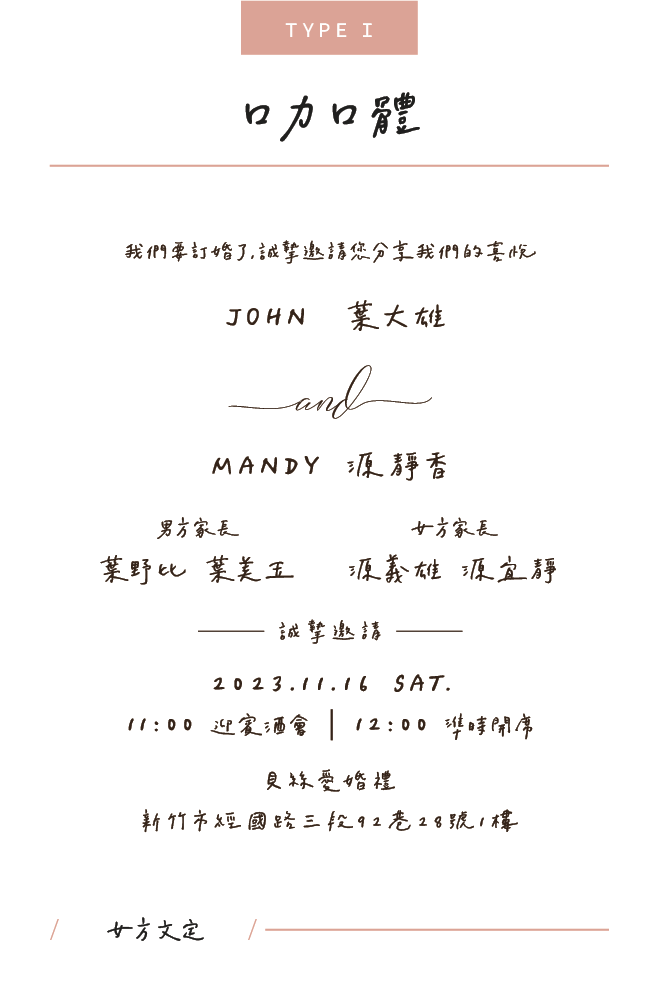 TYPE I
口力口體
我們要訂婚了,誠摯邀請您分享我們的喜悅
JOHN 葉大雄
and
MANDY 源靜香
男方家長 女方家長
葉野比 葉美玉 源義雄 源宜靜
誠摯邀請
2023.11.16 SAT.
11:00 迎賓酒會 | 12:00 準時開席
貝絲愛婚禮
新竹市經國路三段92巷28號1樓
女方文定